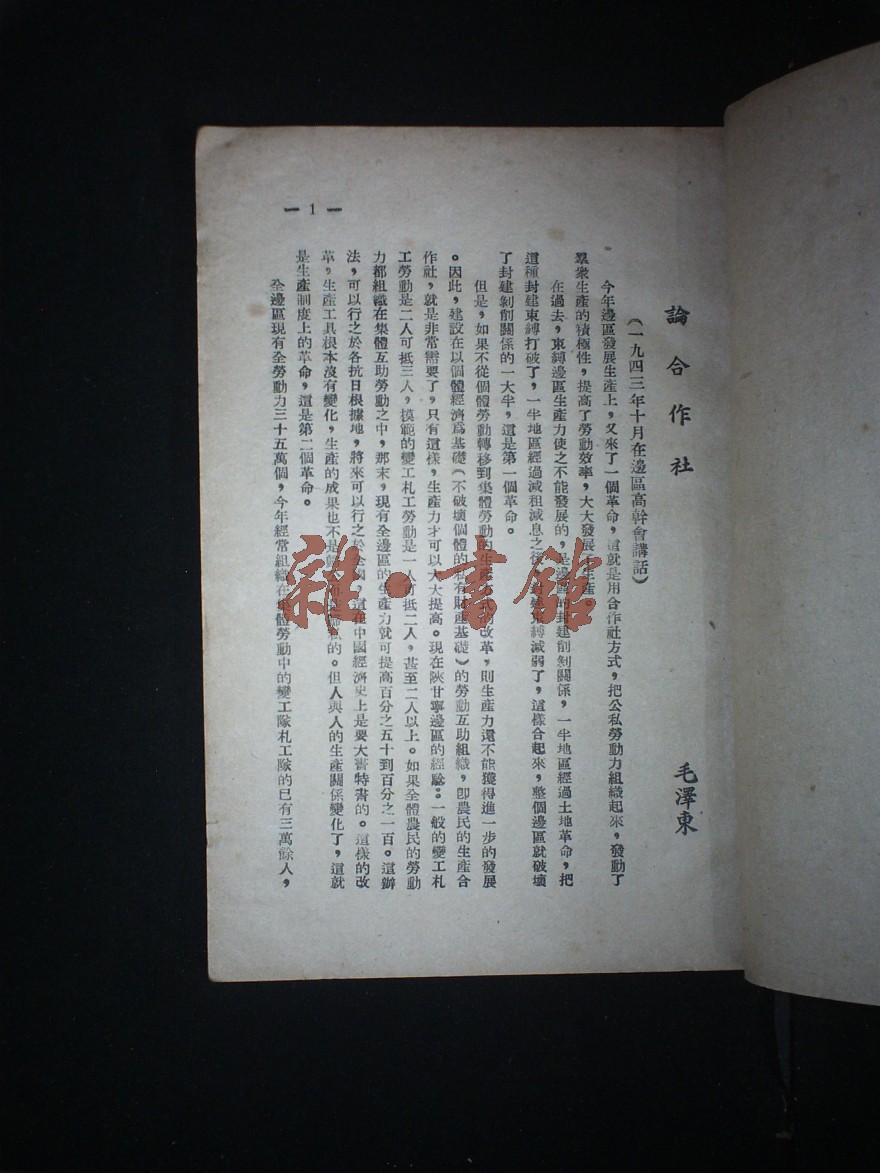 論合作社
毛澤東
(一九四三年十月在邊區高幹會講話)
今年邊區發展生產上，又來了一個革命，這就是用合作社方式，把公私勞動力組織起來，發動了
羣衆生產的積極性，提高了勞動效率，大大發展了生產。
在過去，束縛邊區生產力使之不能發展的，是邊區的封建削剝關係，一半地區經過土地革命，把
這種封建束縛打破了，一半地區經過減租減息之後，封建束縛減弱了，這樣合起來，整個邊區就破壞
了封建剝削關係的一大半，這是第一個革命。
但是，如果不從個體勞動轉移到集體勞動的生產方式的改革，則生產力還不能獲得進一步的發展
。因此，建設在以個體經濟爲基礎(不破壞個體的私有財產基礎)的勞動互助組織，卽農民的生產合
作社，就是非常需要了，只有這樣，生產力才可以大大提高。現在陝甘寧邊區的經驗：一般的變工札
工勞動是二人可抵三人，摸範的變工札工勞動是一人可抵二人，甚至二人以上。如果全體農民的勞動
力都組織在集體互助勞動之中，那末，現有全邊區的生產力就可提高百分之五十到百分之一百。這辦
法，可以行之於各抗日根據地，將來可以行之於全國，這在中國經濟史上是要大書特書的。這樣的改
革，生產工具根本沒有變化，生產的成果也不是的。但人與人的生產關係變化了，這就
是生產制度上的革命，這是第二個革命。
全邊區現有全勞動力三十五萬個，今年經常組織在集體勞動中的變工隊札工隊的已有三萬餘人，
— 1 —
雜·書館